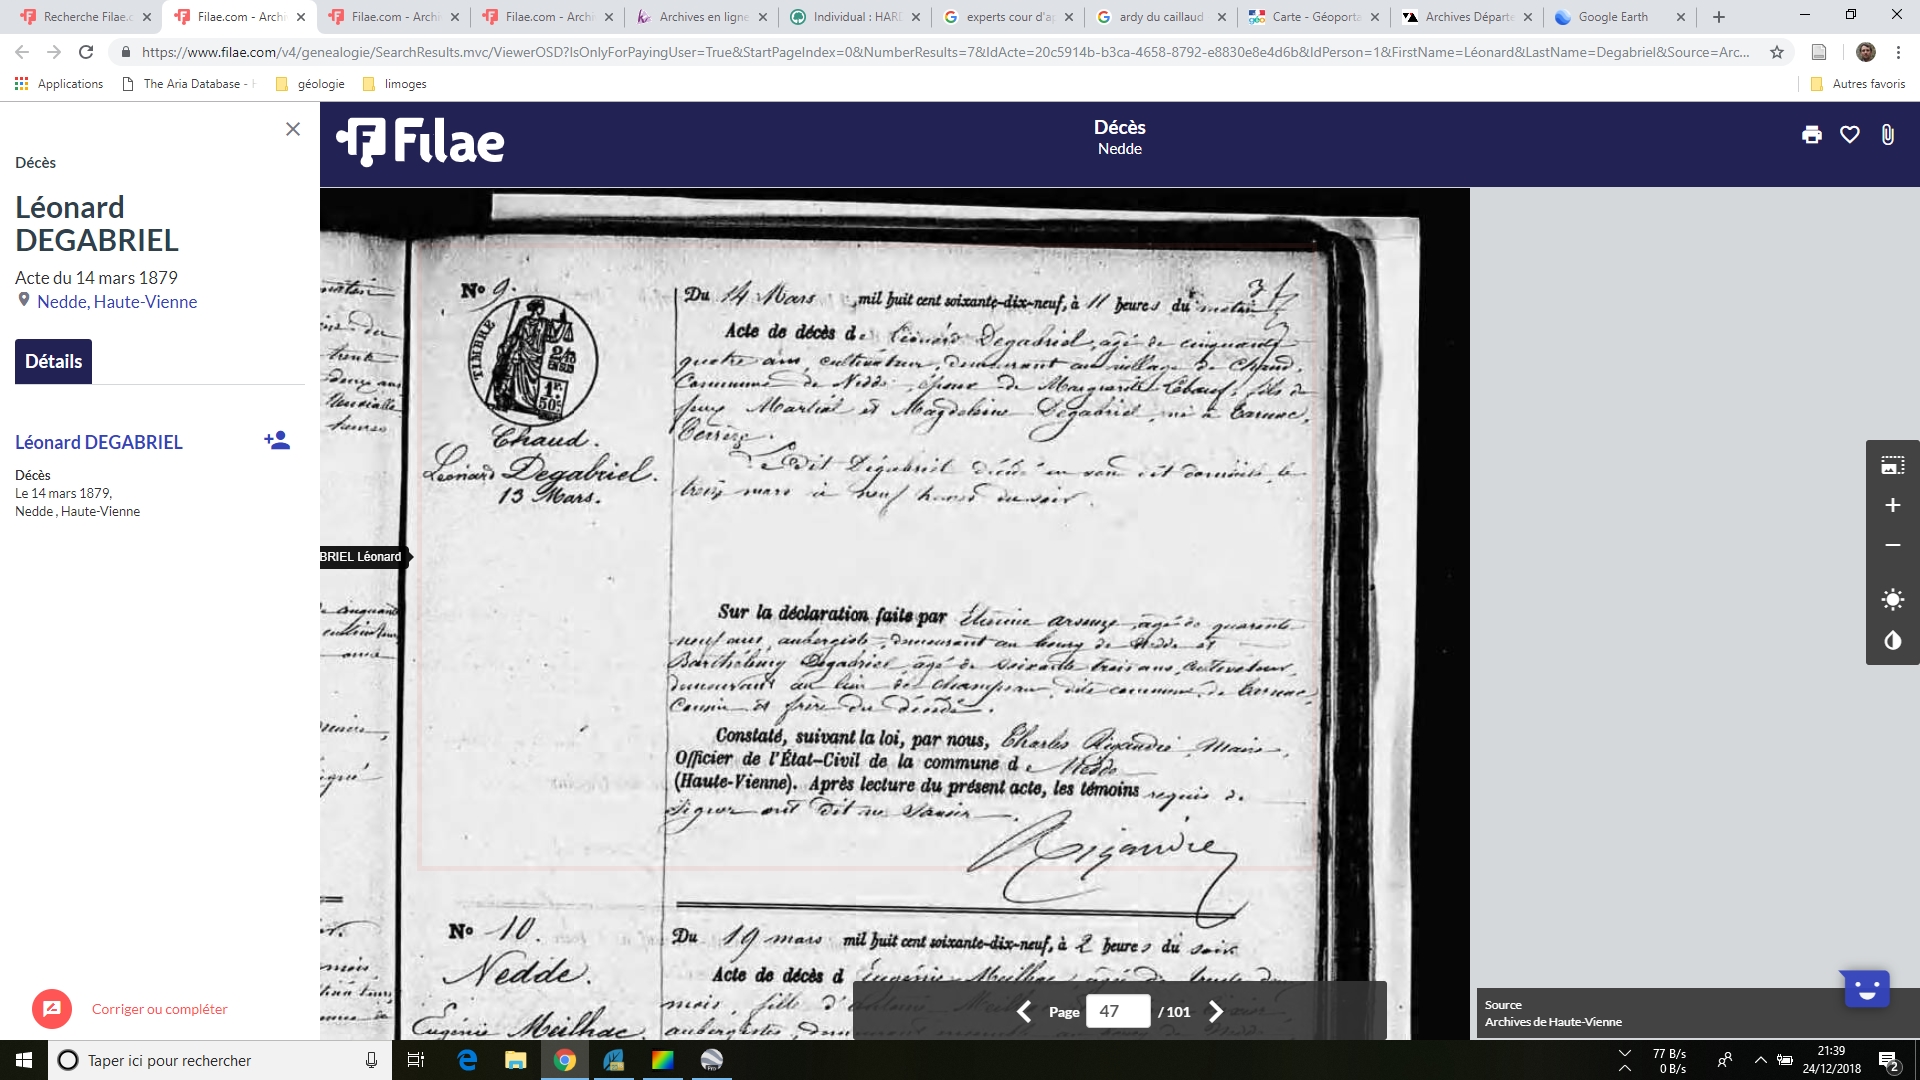 Recherche Filae.c
Filae.com - Archi
Filae.com - Archi
Filae.com - Archi
Archives en ligne
Individual : HARD
experts cour d'ap
ardy du caillaud
Carte - Géoporta
Archives Départe
Google Earth
https://www.filae.com/v4/genealogie/SearchResults.mvc/ViewerOSD?IsOnlyForPayingUser=True&StartPageIndex=0&NumberResults=7&IdActe=20c5914b-b3ca-4658-8792-e8830e8e4d6b&IdPerson=1&FirstName=Léonard&LastName=Degabriel&Source=Arc...
Applications
The Aria Database -
géologie
limoges
Autres favoris
Décès
Léonard
DEGABRIEL
Acte du 14 mars 1879
Nedde, Haute-Vienne
Détails
Léonard DEGABRIEL
Décès
Le 14 mars 1879,
Nedde , Haute-Vienne
Corriger ou compléter
Filae
Décès
Nedde
BRIEL Léonard
No 9.
TIMBRE
Chaud.
Léonard Degabriel.
13 Mars.
Du 14 Mars mil huit cent soixante-dix-neuf, à 11 heures du matin
Acte de décès de Léonard Degabriel, agé de cinquante
quatre ans, cultivateur, demeurant au village de Chaud,
Commune de Nedde, époux de Marguerite Lebœuf, fils de
feux Martial et Magdeleine Degabriel, né à Tarnac,
Corrèze.
Le dit Degabriel décédé en son dit domicile, le
treize mars à neuf heures du soir.
Sur la déclaration faite par Etienne agé de quarante
neuf ans, aubergiste, demeurant au bourg de Nedde et
Barthélemy Degabriel, âgé de soixante trois ans, cultivateur,
demeurant au lieu de dite commune de Tarnac,
Cousin et frère du décédé.
Constaté, suivant la loi, par nous, Charles Rigaudie, Maire,
Officier de l'État-Civil de la commune de Nedde
(Haute-Vienne). Après lecture du présent acte, les témoins requis de
signer ont dit ne savoir.
Rigaudie
No 10.
Nedde.
Eugénie Meilhac.
Du 19 mars mil huit cent soixante-dix-neuf, à 2 heures du soir
Acte de décès d Eugénie Meilhac, agée de
mois, fille d'
aubergistes,
Page 47 / 101
Source
Archives de Haute-Vienne
Taper ici pour rechercher
77 B/s
0 B/s
21:39
24/12/2018
2